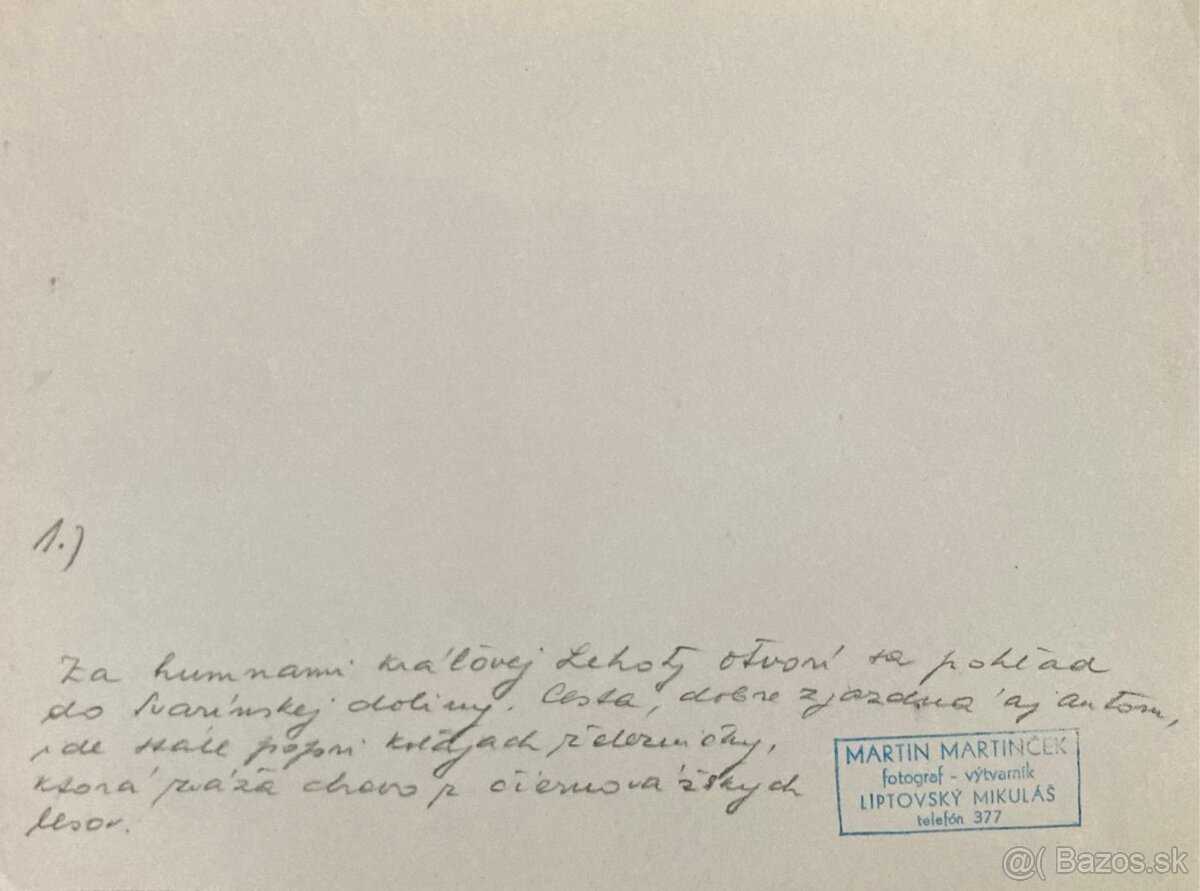 1.)
Za humnami kráľovej Lehoty otvorí sa pohľad
do Svarínskej doliny. Cesta, dobre zjazdná aj autom,
ide stále popri koľajach železničky,
ktorá zváža drevo z čiernovážskych
lesov.
MARTIN MARTINČEK
fotograf - výtvarník
LIPTOVSKÝ MIKULÁŠ
telefón 377
@( Bazos.sk